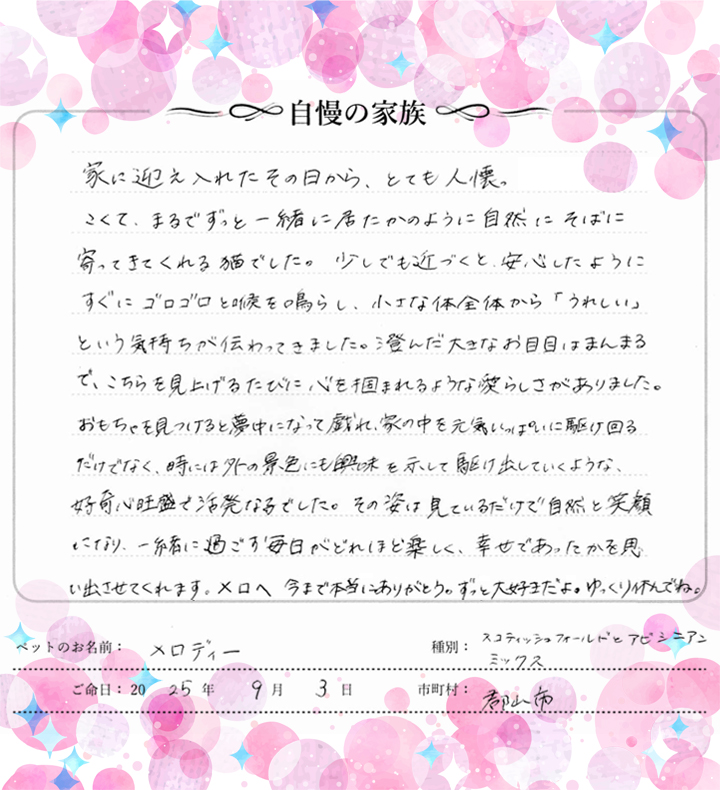 自慢の家族
家に迎え入れたその日から、とても人懐。
こくて、まるでずっと一緒に居たかのように自然にそばに
寄ってきてくれる猫でした。少しでも近づくと、安心したように
すぐにゴロゴロと喉を鳴らし、小さな体全体から「うれしい」
という気持ちが伝わってきました。澄んだ大きなお目目はまんまる
で、こちらを見上げるたびに心を掴まれるような愛らしさがありました。
おもちゃを見つけると夢中になって戯れ、家の中を元気いっぱいに駆け回る
だけでなく、時には外の景色にも興味を示して駆け出していくような、
好奇心旺盛で活発なるでした。その姿は見ているだけで自然と笑顔
になり、一緒に過ごす毎日がどれほど楽しく、幸せであったかを思
い出させてくれます。メロへ 今まで本当にありがとう。ずっと大好きだよ。ゆっくり休んでね。
ペットのお名前： メロディー 種別： スコティッシュフォールドとアビシニアン
ミックス
ご命日：2025年 9月 3日 市町村： 郡山市